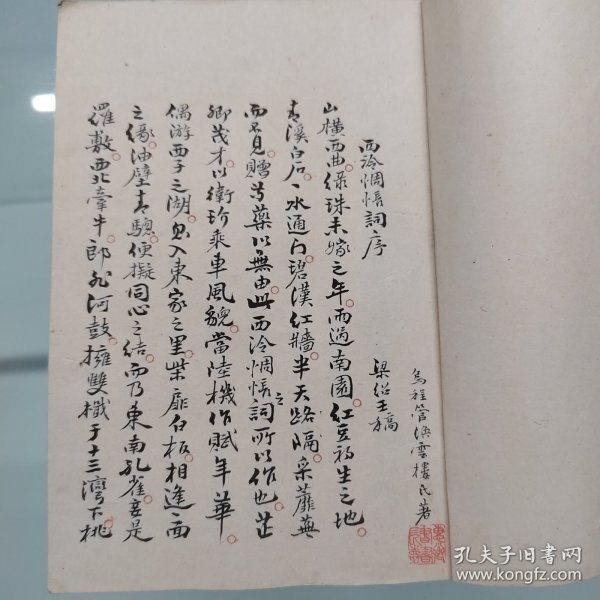 烏程管 雲樓氏著
西泠惆悵詞序
梁紹壬稿
山橫西曲。綠珠未嫁之年。雨過南園。紅豆初生之地。
青溪白石。一水通門。碧漢紅牆。半天路隔。采蘼蕪
而不見。贈芍藥以無由。此西泠惆悵之詞所以作也。芷
卿茂才以衛玠乘車風貌。當陸機作賦年華。
偶游西子之湖。忽入東家之里。柴扉白板。相逢一面
之緣。油壁青驄。便擬同心之結。而乃東南孔雀。妾是
羅敷。西北牽牛。郎非河鼓。擁雙檝于十三灣下。桃
孔夫子旧书网
www.kongfz.com